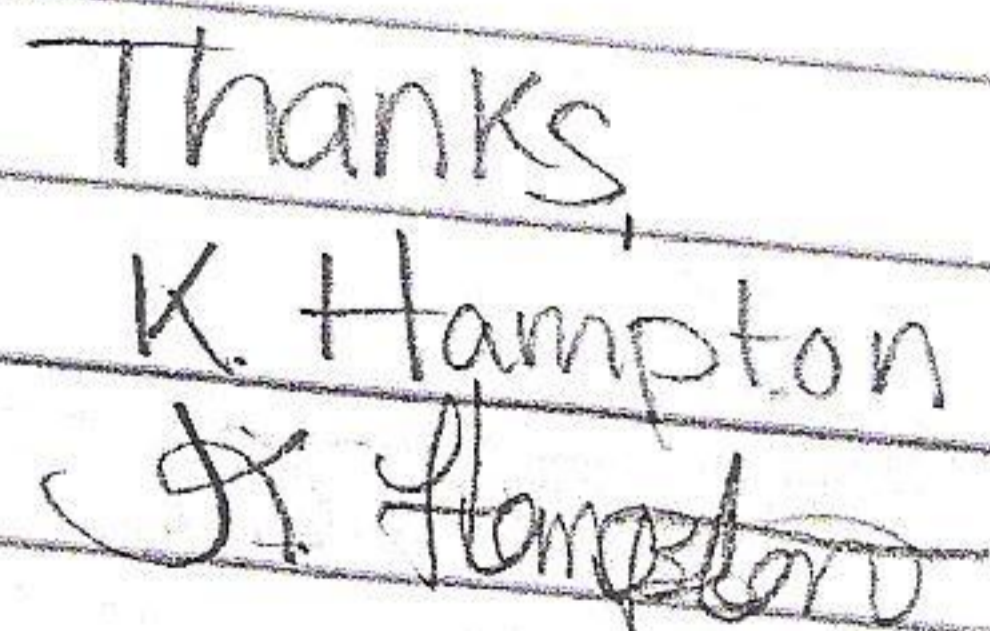 Thanks,
K. Hampton
K. Hampton